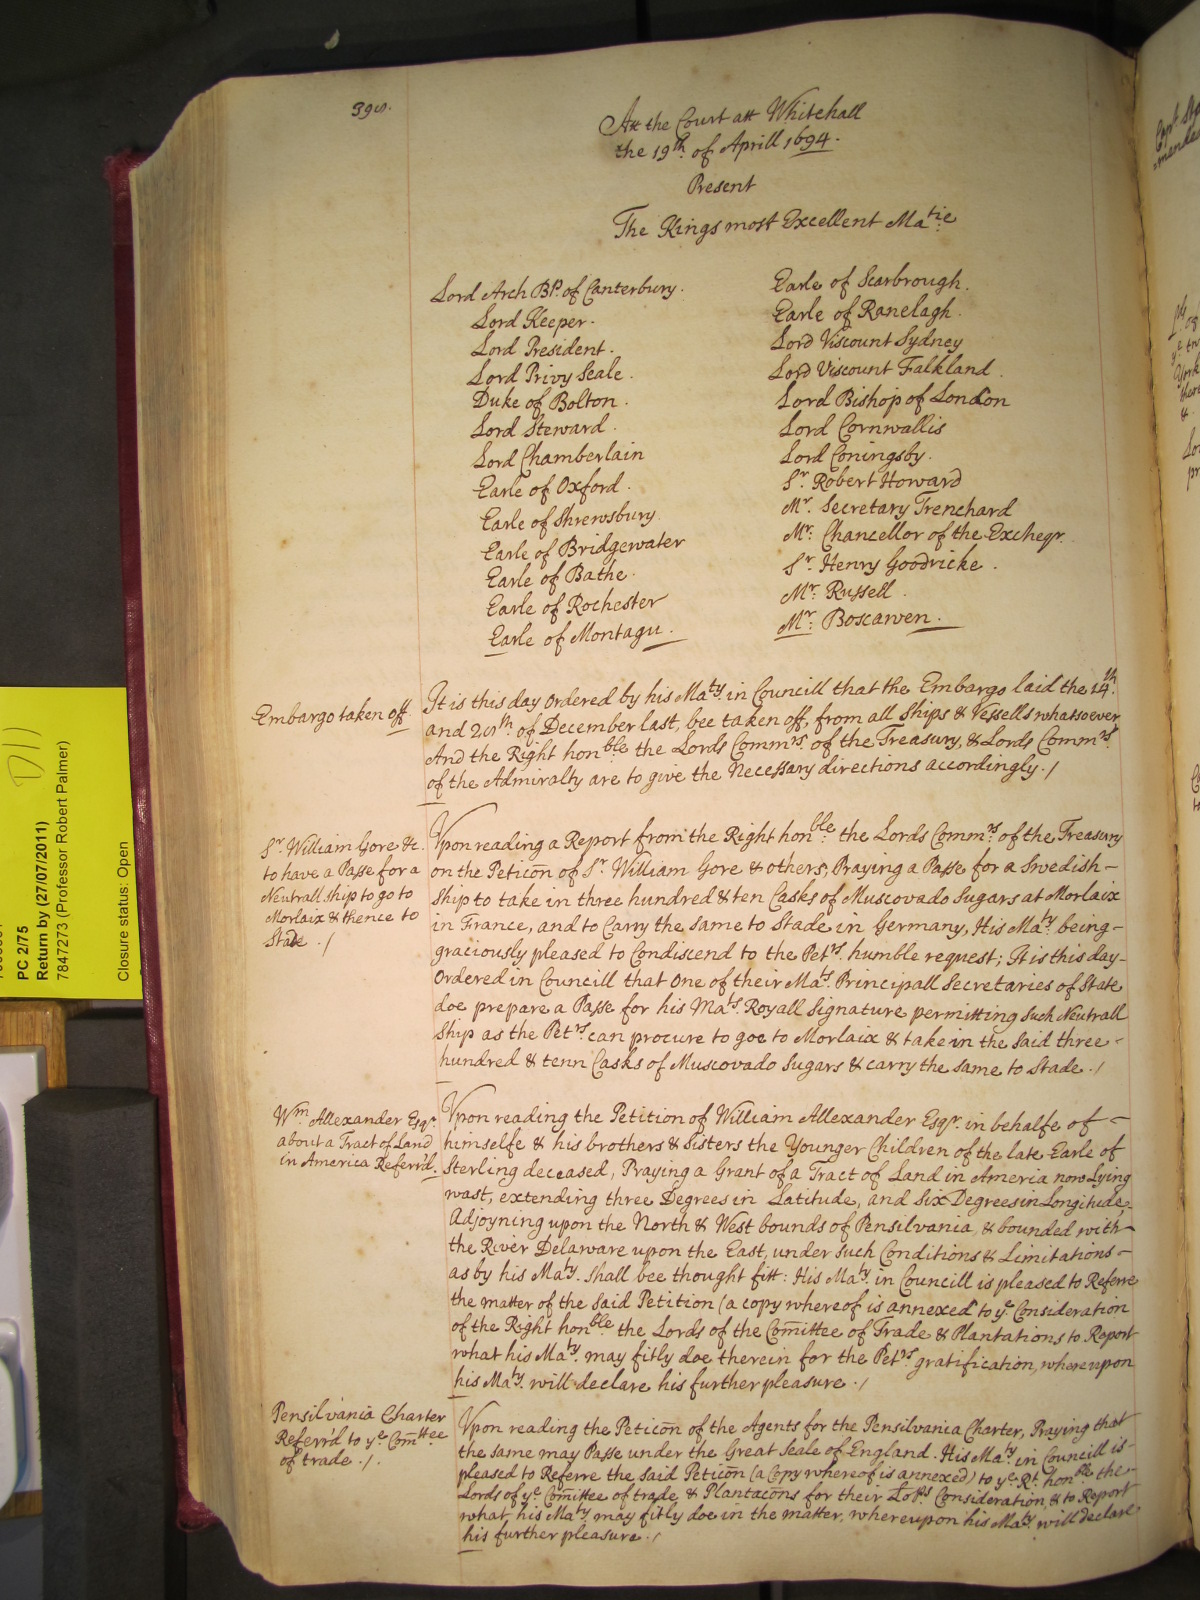 398.
Att the Court att Whitehall
the 19th. of Aprill 1694.
Present
The Kings most Excellent Matie
Lord Arch Bp. of Canterbury.
Lord Keeper.
Lord President.
Lord Privy Seale.
Duke of Bolton.
Lord Steward.
Lord Chamberlain
Earle of Oxford.
Earle of Shrewsbury.
Earle of Bridgewater
Earle of Bathe.
Earle of Rochester
Earle of Montagu.
Earle of Scarbrough.
Earle of Ranelagh.
Lord Viscount Sydney
Lord Viscount Falkland.
Lord Bishop of London
Lord Cornwallis
Lord Coningsby.
Sr. Robert Howard
Mr. Secretary Trenchard
Mr. Chancellor of the Excheqr.
Sr. Henry Goodricke.
Mr. Russell.
Mr. Boscawen.
Embargo taken off
It is this day Ordered by his Maty. in Councill that the Embargo laid the 14th.
and of December last, bee taken off, from all Ships & Vessells whatsoever
And the Right honble the Lords Commrs. of the Treasury, & Lords Commrs.
of the Admiralty are to give the Necessary directions accordingly./
Sr. William Gore &c.
to have a Passe for a
Neutrall ship to go to
Morlaix & thence to
Stade ./
Vpon reading a Report from the Right honble the Lords Commrs. of the Treasury
on the Peticōn of Sr. William Gore & others, Praying a Passe for a Swedish-
Ship to take in three hundred & ten Casks of Muscovado Sugars at Morlaix
in France, and to Carry the same to Stade in Germany, His Maty. being-
graciously pleased to Condiscend to the Petrs. humble request; It is this day-
Ordered in Councill that One of their Mats. Principall Secretaries of State
doe prepare a Passe for his Mats. Royall Signature permitting such Neutrall
Ship as the Petrs. can procure to goe to Morlaix & take in the said three-
hundred & tenn Casks of Muscovado Sugars & carry the same to Stade./
Wm. Allexander Esqr.
about a Tract of Land
in America Referr'd.
Vpon reading the Petition of William Allexander Esqr. in behalfe of-
himselfe & his brothers & Sisters the Younger Children of the late Earle of
Sterling deceased, Praying a Grant of a Tract of Land in Ameria now Lying
wast, extending three Degrees in Latitude, and Six Degrees in Longitude,
Adjoyning upon the North & West bounds of Pensilvania, & bounded with-
the River Delaware upon the East, under such Conditions & Limitations-
as by his Maty. Shall bee thought fitt: His Maty. in Councill is pleased to Referre
the matter of the said Petition (a copy whereof is annexed to ye. Consideration
of the Right honble the Lords of the Com̄ittee of Trade & Plantations to Report
what his Maty. may fitly doe therein for the Petrs. gratification, whereupon
his Maty. will declare his further pleasure./
Pensilvania Charter
Referr'd to ye. Com̄ttee
of trade./.
Vpon reading the Peticōn of the Agents for the Pensilvania Charter, Praying that
the same may Passe under the Great Seale of England. His Maty. in Councill is-
pleased to Referre the said Peticōn (a Copy whereof is annexed) to ye. Rt. honble the-
Lords of ye. Com̄ittee of trade & Plantacōns for their Lopps Consideration, & to Report
what his Maty. may fitly doe in the matter, whereupon his Maty. will declare
his further pleasure./
D11
PC 2/75
Return by (27/07/2011)
7847273 (Professor Robert Palmer)
Closure status: Open